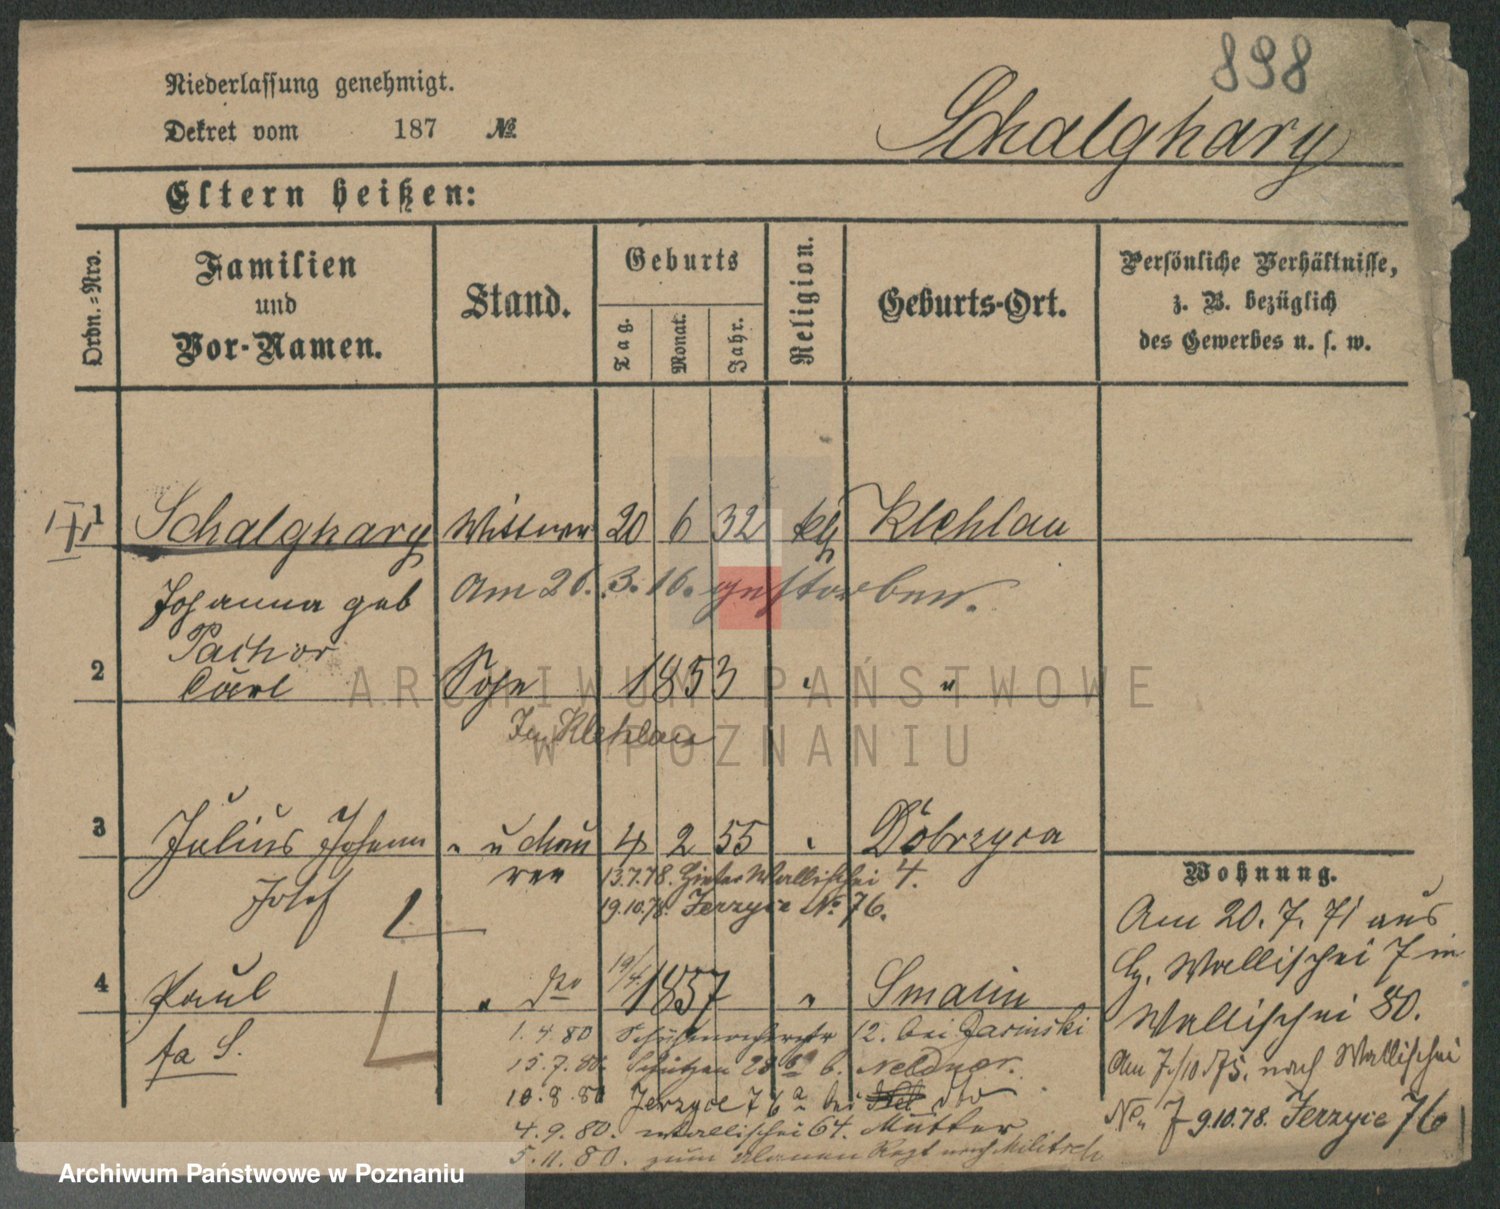 898
Niederlassung genehmigt.
Dekret vom 187 №
Schalghary
Eltern heißen:
Ordn.=Nro.
Familien
und
Vor-Namen.
Stand.
Geburts
Tag.
Monat.
Jahr.
Religion.
Geburts-Ort.
Persönliche Verhältnisse,
z. B. bezüglich
des Gewerbes u. s. w.
1 Schalghary Wittwe 20 6 32 kth Klehlau
Johanna geb Am 26. 3. 16. gestorben.
Pachor
2 Carl Sohn 1853 " "
In Klehlau
3 Julius Johann " u Mau 4 2 55 " Dobrzyca
Josef rer 13.7.78. Hinter Wallischei 4.
19.10.78. Jerzyce No. 76.
4 Paul " do 19/4 1857 " Smalin
fa S.
1.4.80 12. bei Jasinski
15.7.80. Schützen 28 b. Neldner.
10.8.80 Jerzyce 76a bei dto
4.9.80. Wallischei 64. Mutter
5.11.80. zum Ulanen Regt nach Militsch
Wohnung.
Am 20. 7. 71 aus
Wallischei 7 in
Wallischei 80.
Am 7/10 75. nach Wallischei
No. 7 9.10.78. Jerzyce 76
ARCHIWUM PAŃSTWOWE
W POZNANIU
Archiwum Państwowe w Poznaniu